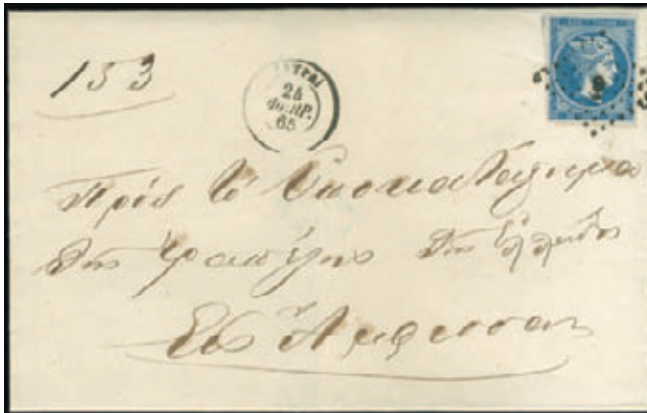 153
24
ΦΕΒΡ.
65
Πρὸς τὸ Ὑποκατάστημα
τῆς Τραπέζης τῆς Ἑλλάδος
Εἰς Ἄμφισσαν